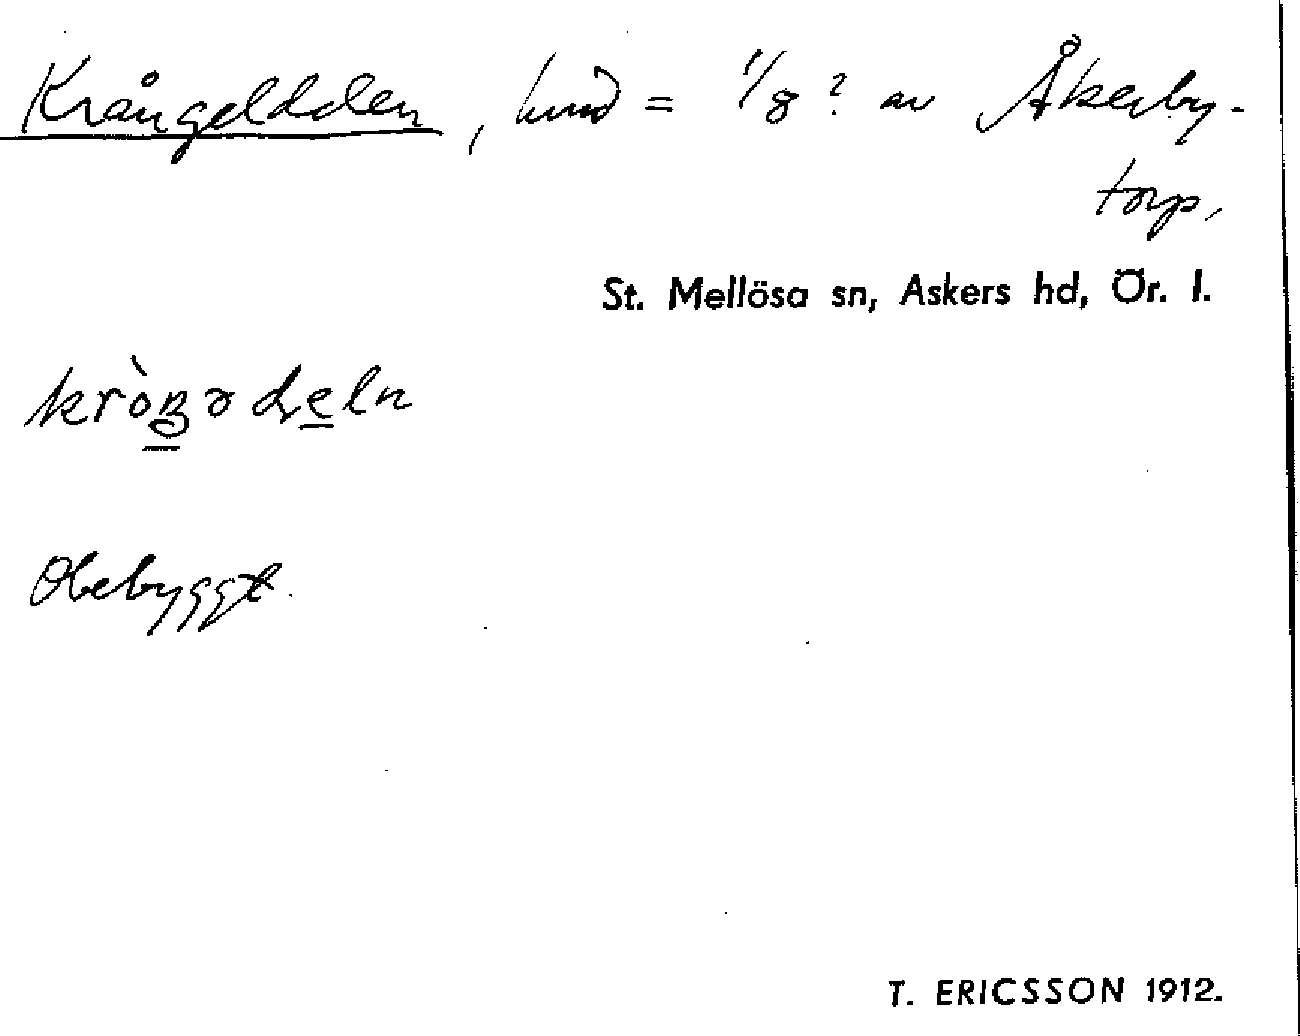 Krångeldelen, hmd = 1/8 ? av Åkerby-
torp,
St. Mellösa sn, Askers hd, Ör. l.
Obebyggt.
T. ERICSSON 1912.